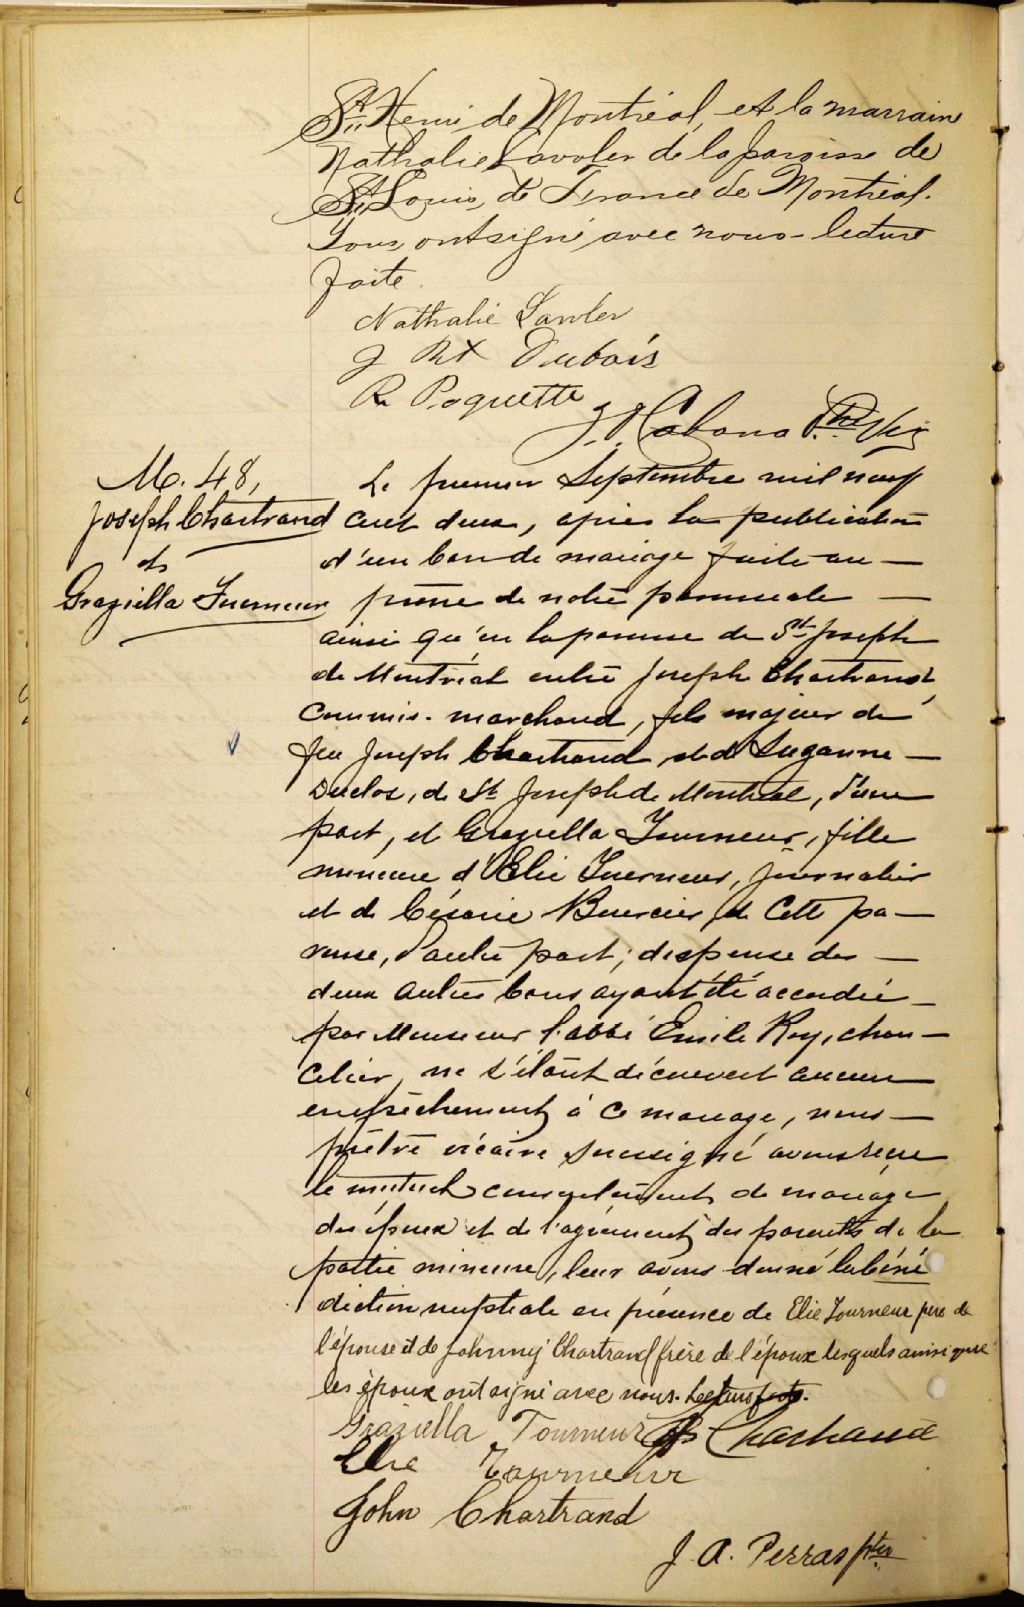 St. Henri de Montréal, et la marraine
Nathalie Lawler de la paroisse de
St. Louis de France de Montréal.
Tous ont signé avec nous - lecture
faite.
Nathalie Lawler
J Bte Dubois
R. Poquette
Cabana Ptre Vic
M. 48,
Joseph Chartrand
et
Graziella Tourneur
Le premier Septembre mil neuf
cent deux, après la publication
d'un ban de mariage faite au —
prône de notre paroissiale —
ainsi qu'en la paroisse de St. Joseph
de Montréal entre Joseph Chartrand,
Commis-marchand, fils majeur de
feu Joseph Chartrand et de Suzanne —
Duclos, de St. Joseph de Montréal, d'une
part, et Graziella Tourneur, fille
mineure d'Elie Tourneur, journalier
et de Césarie Bourcier, de cette pa—
roisse, d'autre part; dispense des —
deux autres bans ayant été accordée —
par Monsieur l'abbé Emile Roy, chan—
celier, ne s'étant découvert aucun
empêchement à ce mariage, nous —
prêtre vicaire soussigné avons reçu
le mutuel consentement de mariage
des époux et de l'agrément des parents de la
partie mineure, leur avons donné la béné
diction nuptiale en présence de Elie Tourneur père de
l'épouse et de Johnny Chartrand frère de l'époux lesquels ainsi que
les époux ont signé avec nous. Lecture faite.
Graziella Tourneur Jos Chartrand
Elie Tourneur
John Chartrand
J. A. Perras ptre